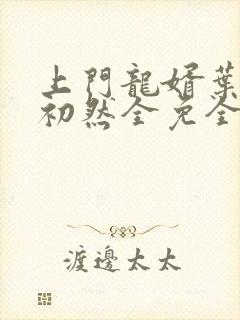 上門龍婿葉
初然全免全
渡邊太太